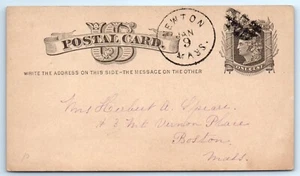 U S
POSTAL CARD.
NEWTON
JAN
9
MASS.
WRITE THE ADDRESS ON THIS SIDE - THE MESSAGE ON THE OTHER
ONE CENT
Herbert A.
Vernon Place
Boston
Mass.